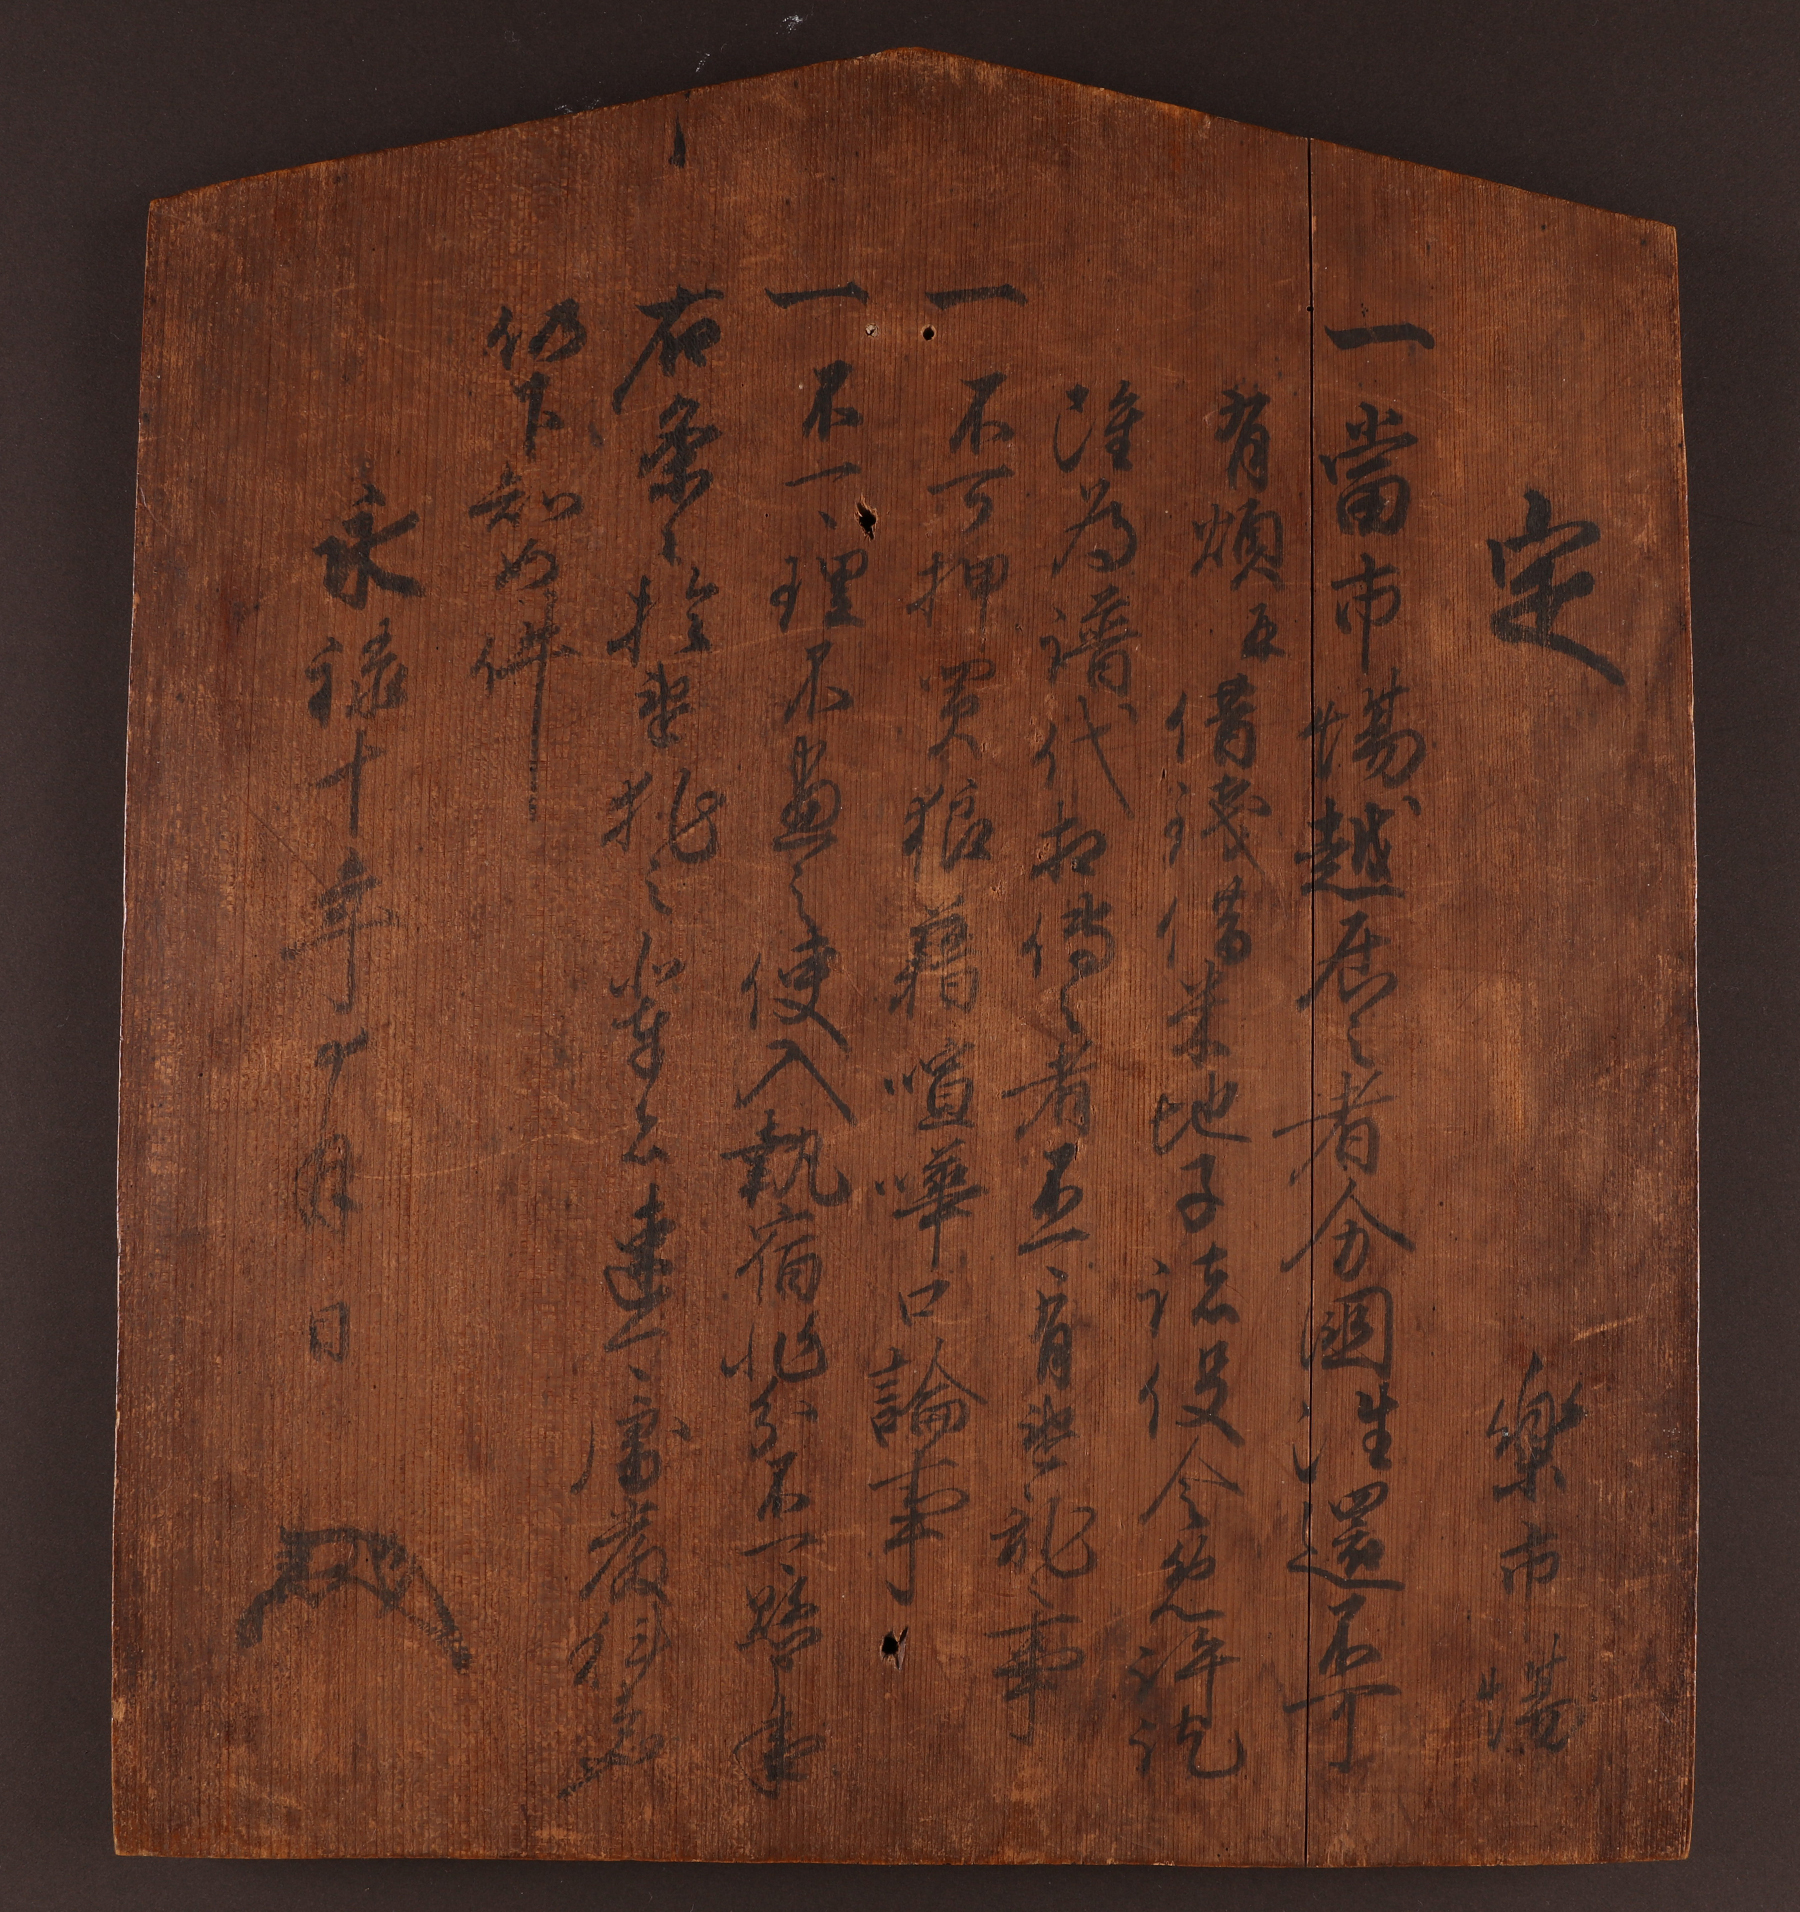 定　樂市場
一當市場越居之者分國往還不可
有煩并借錢借米地子諸役令免許訖
雖為譜代相傳之者不可有違乱之事
一不可押買狼藉喧嘩口論事
一不可理不盡之使入執宿非分不可懸申事
右条々於違犯之輩者速可處嚴科者也
仍下知如件
永禄十年十月日